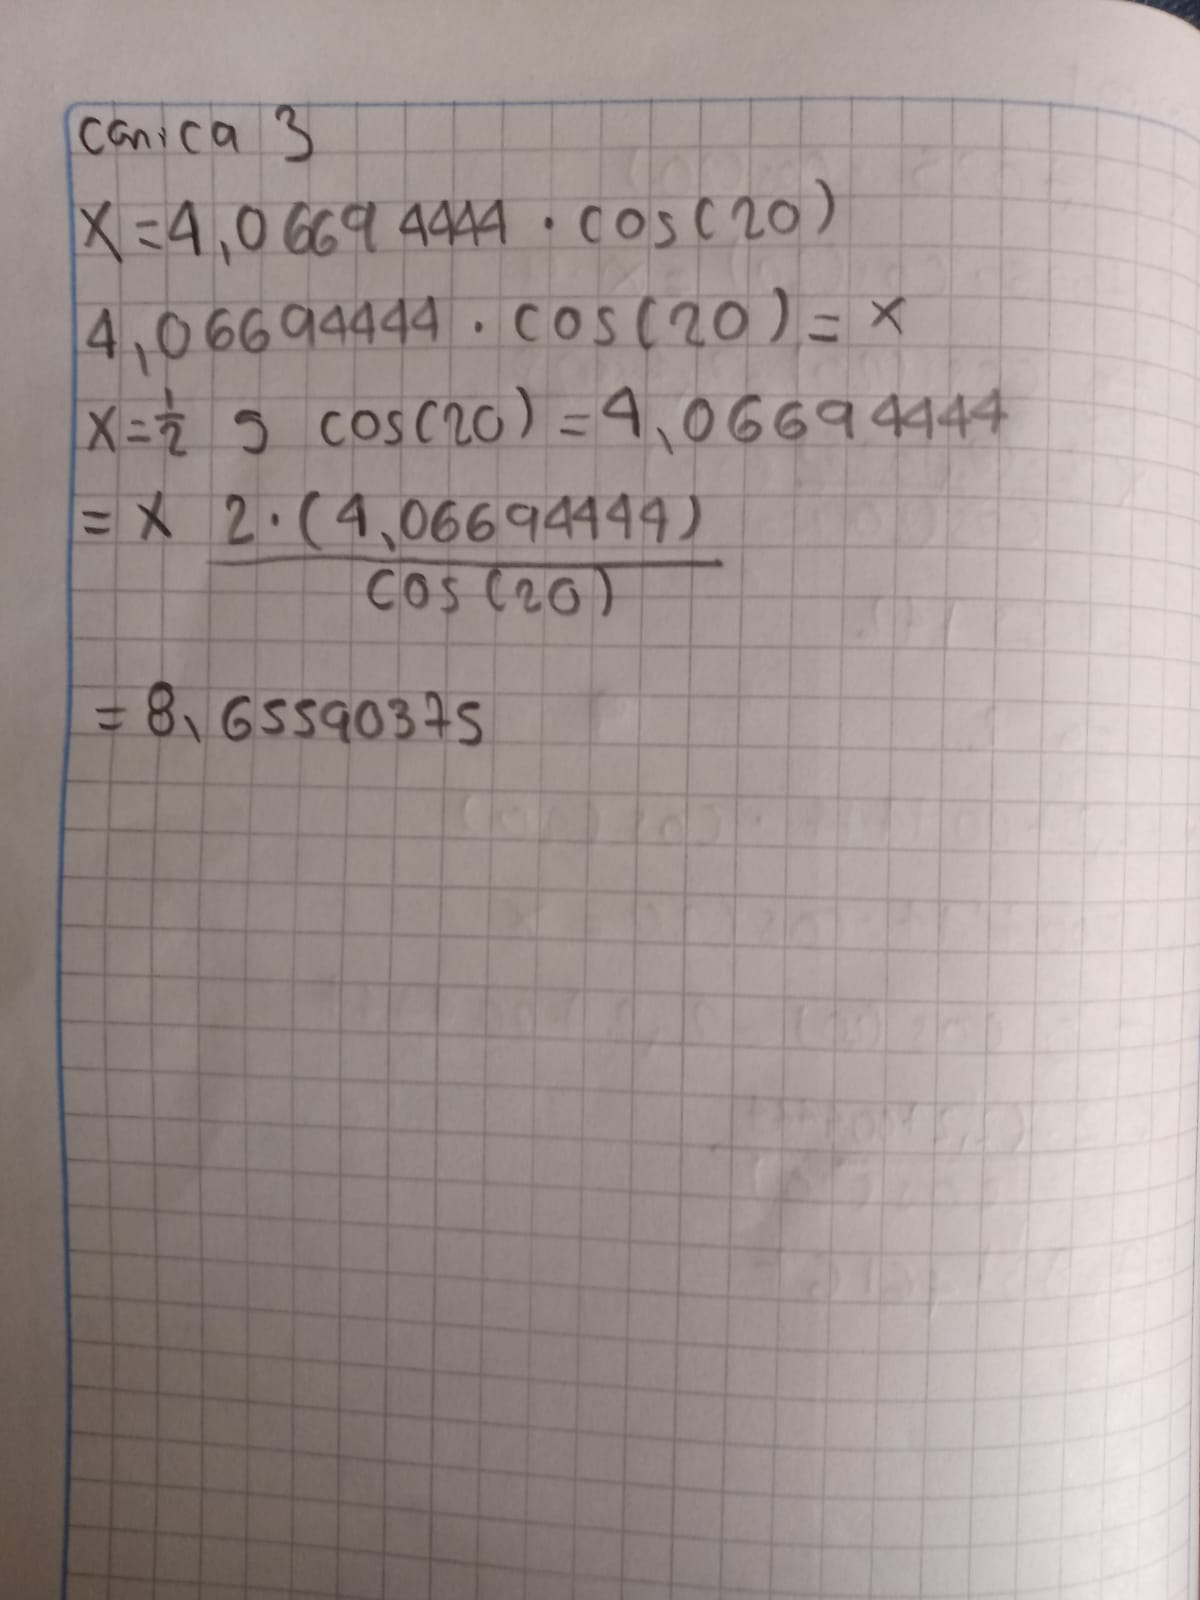 canica 3
X=4,066944444 · cos(20)
4,066944444 · cos(20)=x
x=1/2 g cos(20)=4,066944444
=x 2·(4,066944444)
cos(20)
=8,65590375